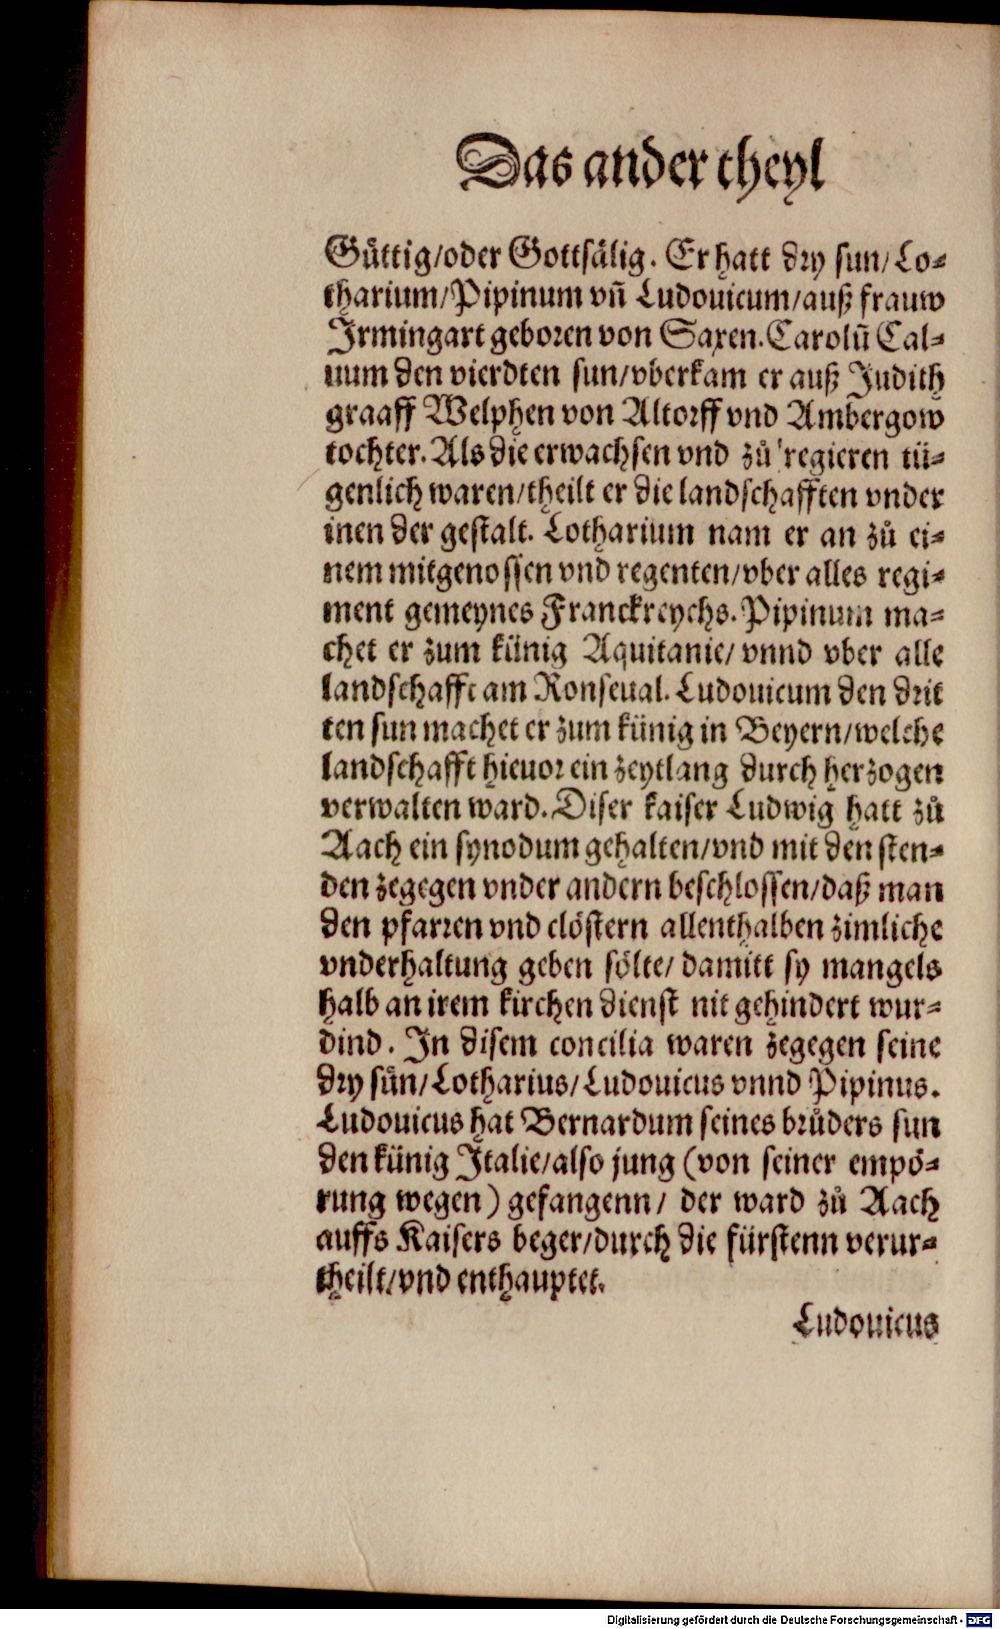 Das ander theyl
Guͤttig/oder Gottsaͤlig. Er hatt dry sun/ Lo⸗
tharium/Pipinum vñ Ludouicum/auß frauw
Irmingart geboren von Saxen. Carolũ Cal⸗
uum den vierdten sun/vberkam er auß Judith
graaff Welphen von Altorff vnd Ambergow
tochter. Als die erwachsen vnd zuͦ regieren tü⸗
genlich waren/theilt er die landschafften vnder
inen der gestalt. Lotharium nam er an zuͦ ei⸗
nem mitgenossen vnd regenten/vber alles regi⸗
ment gemeynes Franckreychs. Pipinum ma⸗
chet er zum künig Aquitanie/ vnnd vber alle
landschafft am Ronseual. Ludouicum den drit
ten sun machet er zum künig in Beyern/welche
landschafft hieuor ein zeytlang durch herzogen
verwalten ward. Diser kaiser Ludwig hatt zuͦ
Aach ein synodum gehalten/vnd mit den sten⸗
den zegegen vnder andern beschlossen/daß man
den pfarren vnd cloͤstern allenthalben zimliche
vnderhaltung geben soͤlte/ damitt sy mangels
halb an irem kirchen dienst nit gehindert wur⸗
dind. In disem concilia waren zegegen seine
dry sün/Lotharius/Ludouicus vnnd Pipinus.
Ludouicus hat Bernardum seines bruͦders sun
den künig Italie/also jung (von seiner empoͤ⸗
rung wegen) gefangenn/ der ward zuͦ Aach
auffs Kaisers beger/durch die fürstenn verur⸗
theilt/vnd enthauptet.
Ludouicus
Digitalisierung gefördert durch die Deutsche Forschungsgemeinschaft - DFG